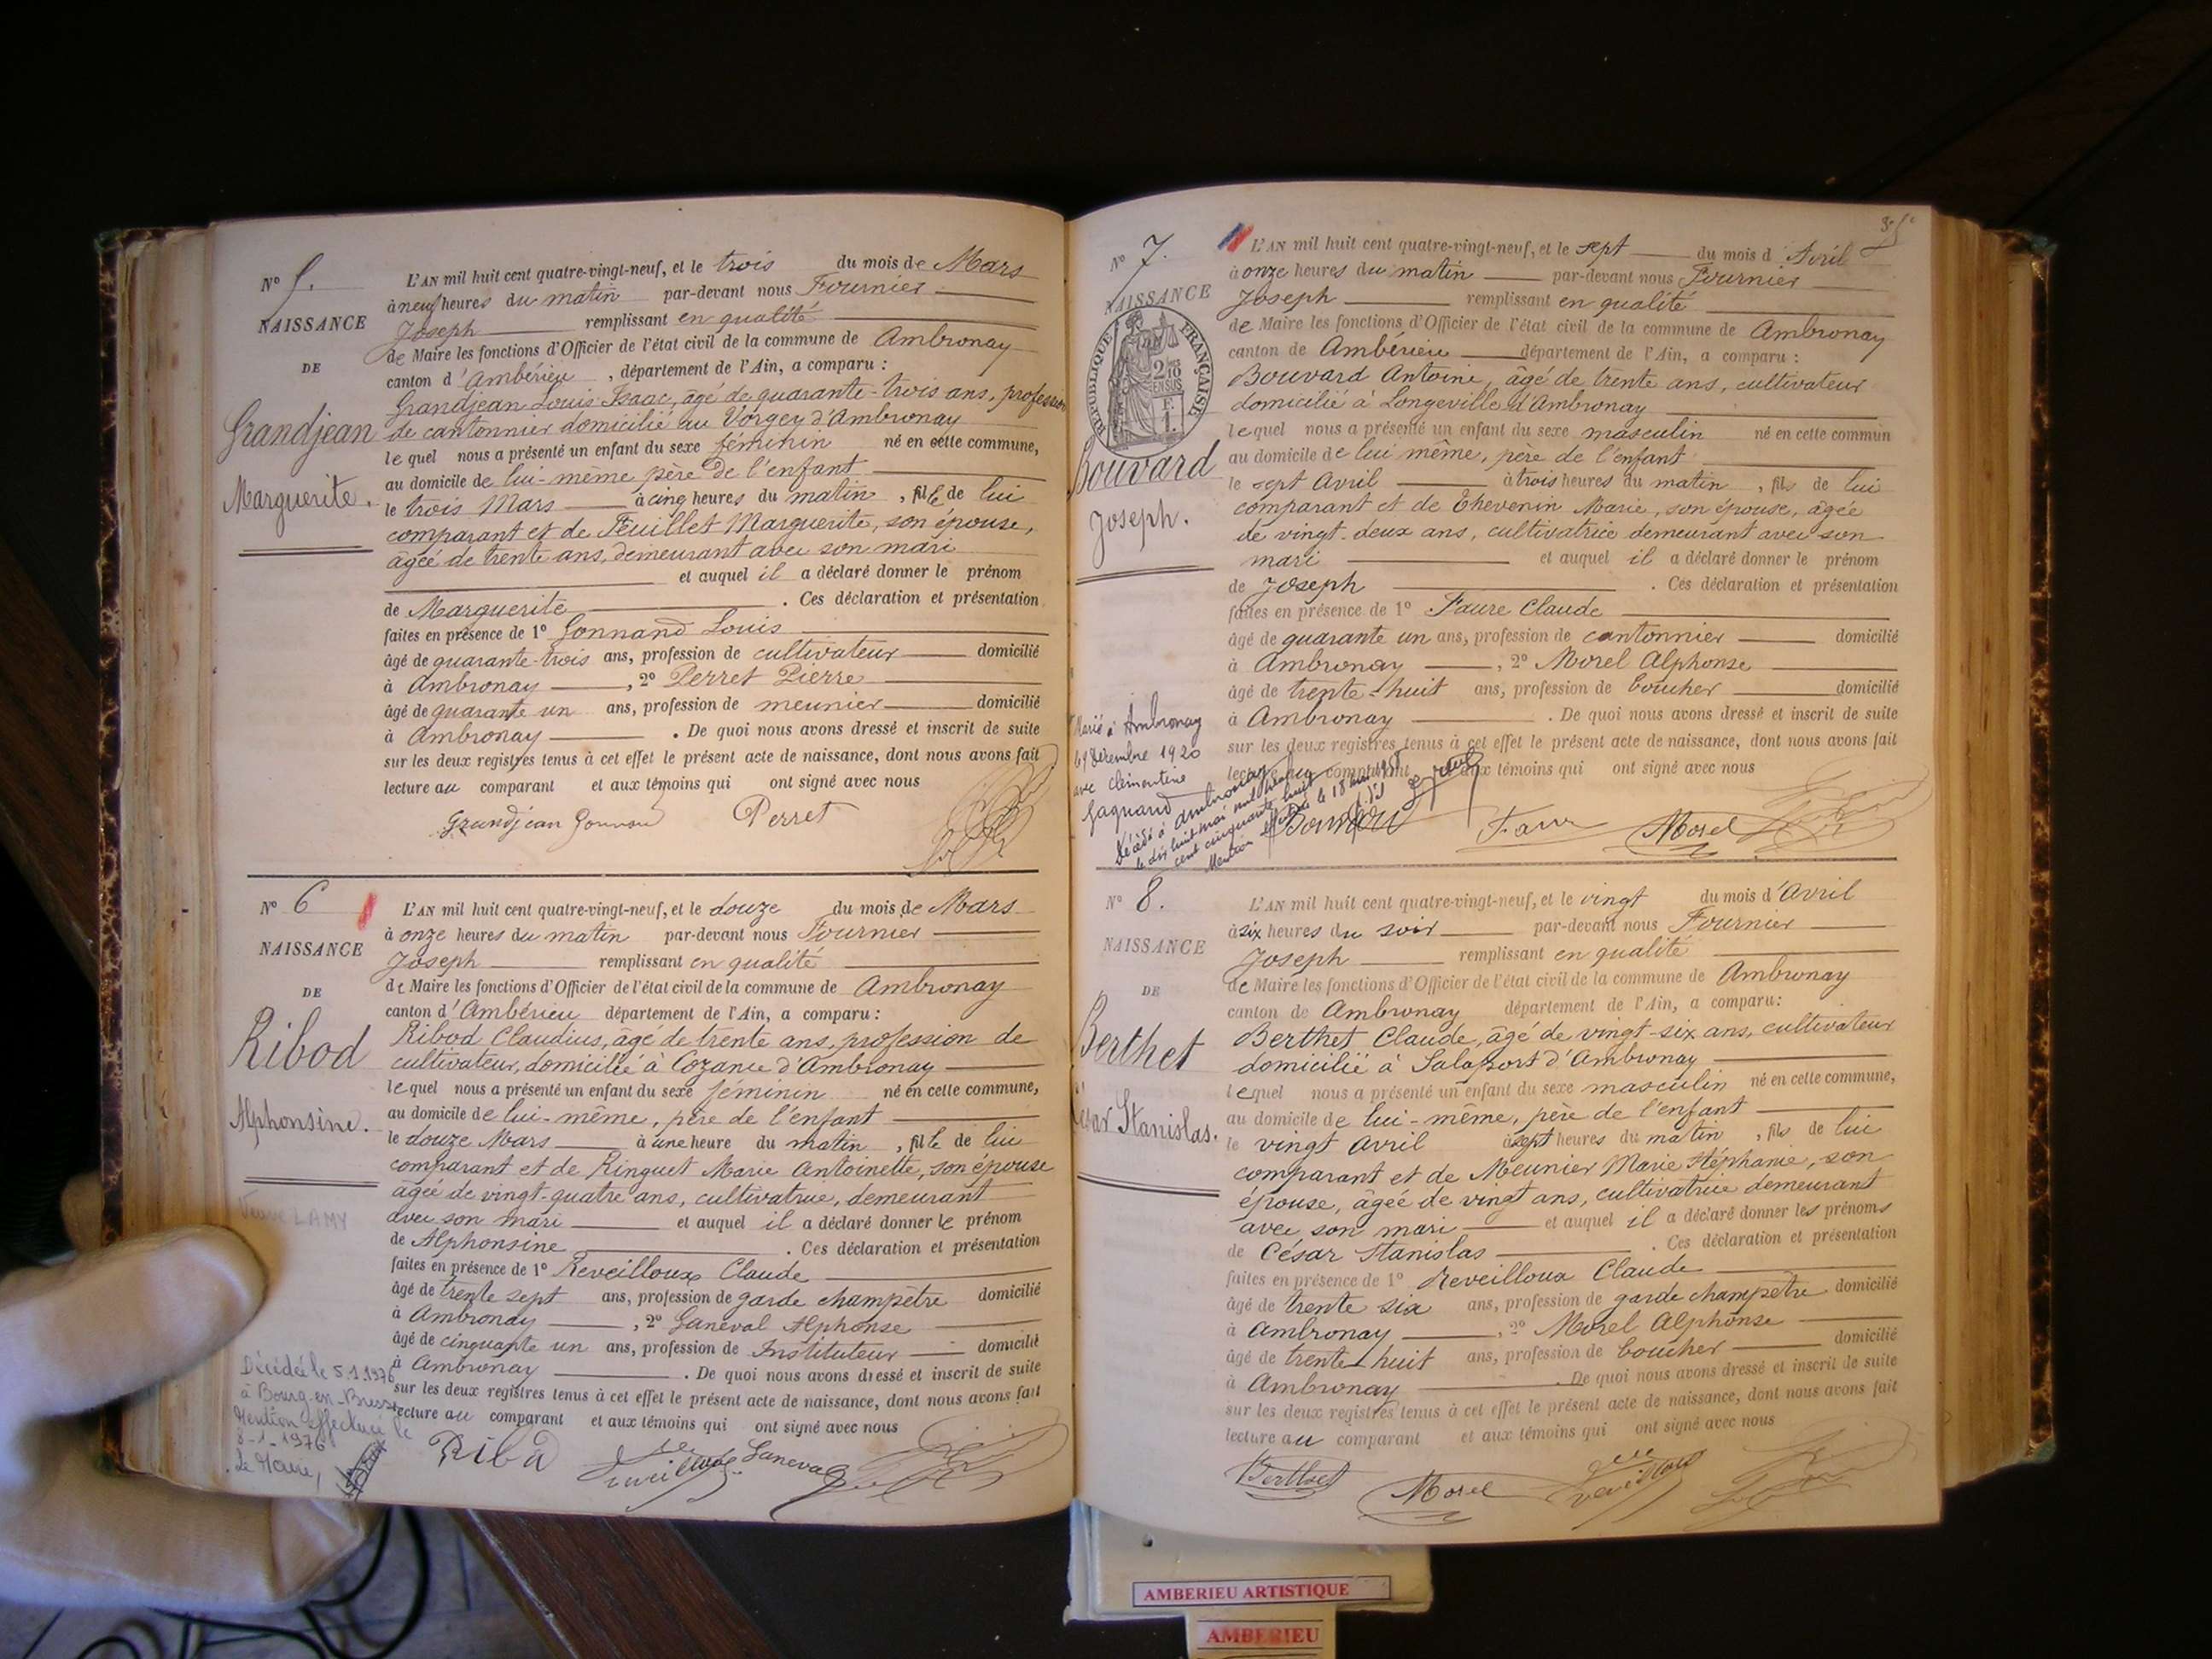 N° 5.
NAISSANCE
DE
Grandjean
Marguerite.
L'AN mil huit cent quatre-vingt-neuf, et le trois du mois de Mars
à neuf heures du matin par-devant nous Fournier
Joseph remplissant en qualité
de Maire les fonctions d'Officier de l'état civil de la commune de Ambronay
canton d'Ambérieu, département de l'Ain, a comparu :
Grandjean Louis Isaac, âgé de quarante-trois ans, profession
de cantonnier domicilié au Vorgey d'Ambronay
lequel nous a présenté un enfant du sexe féminin né en cette commune,
au domicile de lui-même père de l'enfant
le trois Mars à cinq heures du matin, fille de lui
comparant et de Feuillet Marguerite, son épouse,
âgée de trente ans, demeurant avec son mari
et auquel il a déclaré donner le prénom
de Marguerite. Ces déclaration et présentation
faites en présence de 1° Gonnand Louis
âgé de quarante-trois ans, profession de cultivateur domicilié
à Ambronay, 2° Perret Pierre
âgé de quarante un ans, profession de meunier domicilié
à Ambronay. De quoi nous avons dressé et inscrit de suite
sur les deux registres tenus à cet effet le présent acte de naissance, dont nous avons fait
lecture au comparant et aux témoins qui ont signé avec nous
Grandjean Gonnand Perret
N° 6
NAISSANCE
DE
Ribod
Alphonsine.
Veuve LAMY
Décédée le 5.1.1976
à Bourg-en-Bresse
Mention effectuée le
8-1-1976
Le Maire,
L'AN mil huit cent quatre-vingt-neuf, et le douze du mois de Mars
à onze heures du matin par-devant nous Fournier
Joseph remplissant en qualité
de Maire les fonctions d'Officier de l'état civil de la commune de Ambronay
canton d'Ambérieu département de l'Ain, a comparu :
Ribod Claudius, âgé de trente ans, profession de
cultivateur, domicilié à Cozance d'Ambronay
lequel nous a présenté un enfant du sexe féminin né en cette commune,
au domicile de lui-même, père de l'enfant
le douze Mars à une heure du matin, fille de lui
comparant et de Ringuet Marie Antoinette, son épouse
âgée de vingt-quatre ans, cultivatrice, demeurant
avec son mari et auquel il a déclaré donner le prénom
de Alphonsine. Ces déclaration et présentation
faites en présence de 1° Reveilloux Claude
âgé de trente sept ans, profession de garde champêtre domicilié
à Ambronay, 2° Laneval Alphonse
âgé de cinquante un ans, profession de Instituteur domicilié
à Ambronay. De quoi nous avons dressé et inscrit de suite
sur les deux registres tenus à cet effet le présent acte de naissance, dont nous avons fait
lecture au comparant et aux témoins qui ont signé avec nous
Ribd Laneval
N° 7.
NAISSANCE
RÉPUBLIQUE FRANÇAISE
Bouvard
Joseph.
Marié à Ambronay
le 9 Décembre 1920
avec Clémentine
Gagnard
Décédé à Ambronay
le dix huit mai mil neuf
cent cinquante huit
L'AN mil huit cent quatre-vingt-neuf, et le sept du mois d'Avril
à onze heures du matin par-devant nous Fournier
Joseph remplissant en qualité
de Maire les fonctions d'Officier de l'état civil de la commune de Ambronay
canton de Ambérieu département de l'Ain, a comparu :
Bouvard Antoine, âgé de trente ans, cultivateur
domicilié à Longeville d'Ambronay
lequel nous a présenté un enfant du sexe masculin né en cette commun
au domicile de lui même, père de l'enfant
le sept Avril à trois heures du matin, fils de lui
comparant et de Thevenin Marie, son épouse, âgée
de vingt-deux ans, cultivatrice demeurant avec son
mari et auquel il a déclaré donner le prénom
de Joseph. Ces déclaration et présentation
faites en présence de 1° Faure Claude
âgé de quarante un ans, profession de cantonnier domicilié
à Ambronay, 2° Morel Alphonse
âgé de trente-huit ans, profession de boucher domicilié
à Ambronay. De quoi nous avons dressé et inscrit de suite
sur les deux registres tenus à cet effet le présent acte de naissance, dont nous avons fait
lecture au comparant et aux témoins qui ont signé avec nous
Bouvard Faure Morel
N° 8.
NAISSANCE
DE
Berthet
César Stanislas.
L'AN mil huit cent quatre-vingt-neuf, et le vingt du mois d'Avril
à six heures du soir par-devant nous Fournier
Joseph remplissant en qualité
de Maire les fonctions d'Officier de l'état civil de la commune de Ambronay
canton de Ambronay département de l'Ain, a comparu:
Berthet Claude, âgé de vingt-six ans, cultivateur
domicilié à Salaport d'Ambronay
lequel nous a présenté un enfant du sexe masculin né en cette commune,
au domicile de lui-même, père de l'enfant
le vingt Avril à sept heures du matin, fils de lui
comparant et de Meunier Marie Stéphanie, son
épouse, âgée de vingt ans, cultivatrice demeurant
avec son mari et auquel il a déclaré donner les prénoms
de César Stanislas. Ces déclaration et présentation
faites en présence de 1° Reveilloux Claude
âgé de trente six ans, profession de garde champêtre domicilié
à Ambronay, 2° Morel Alphonse
âgé de trente-huit ans, profession de boucher domicilié
à Ambronay. De quoi nous avons dressé et inscrit de suite
sur les deux registres tenus à cet effet le présent acte de naissance, dont nous avons fait
lecture au comparant et aux témoins qui ont signé avec nous
Berthet Morel
AMBERIEU ARTISTIQUE
AMBERIEU